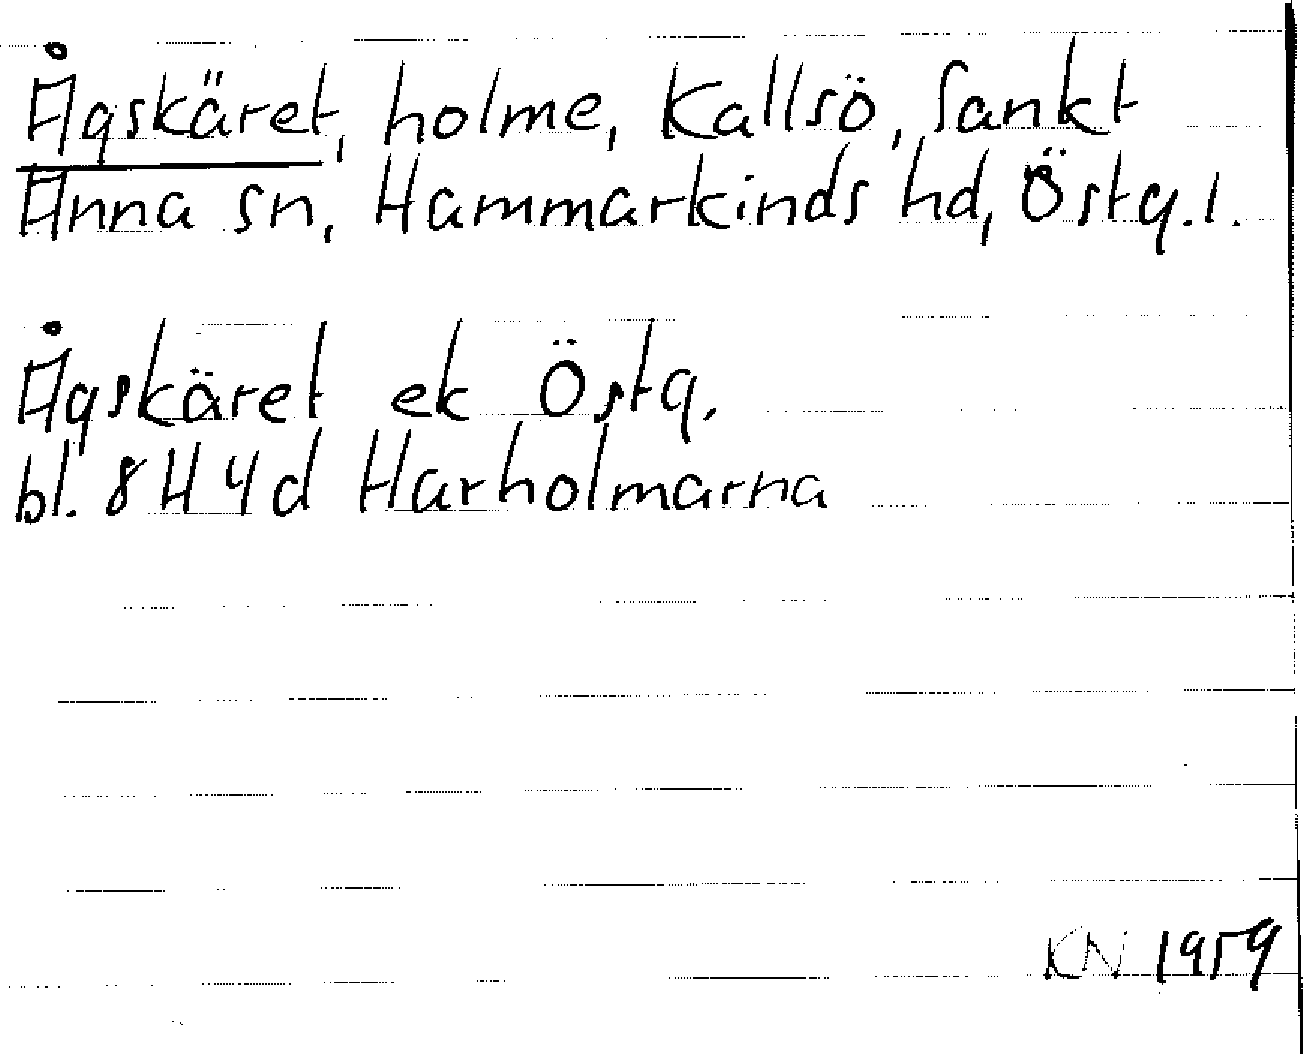 Ågskäret, holme, Kallsö, Sankt
Anna sn, Hammarkinds hd, Östg.l.
Ågskäret ek Östg.
bl. 8H 4d Harholmarna
KN 1959